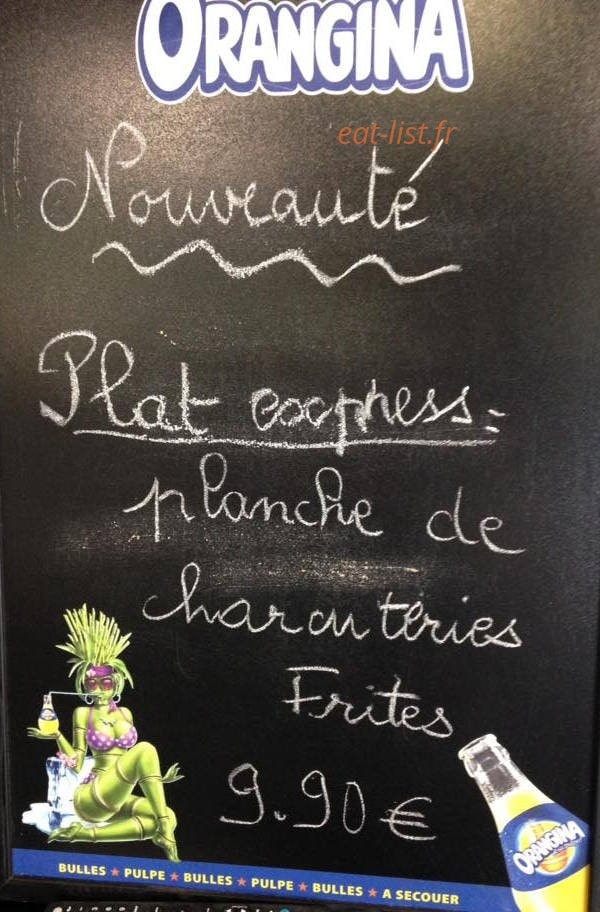 ORANGINA
eat-list.fr
Nouveauté
Plat express :
planche de
charcuteries
Frites
9.90 €
ORANGINA
BULLES ★ PULPE ★ BULLES ★ PULPE ★ BULLES ★ A SECOUER